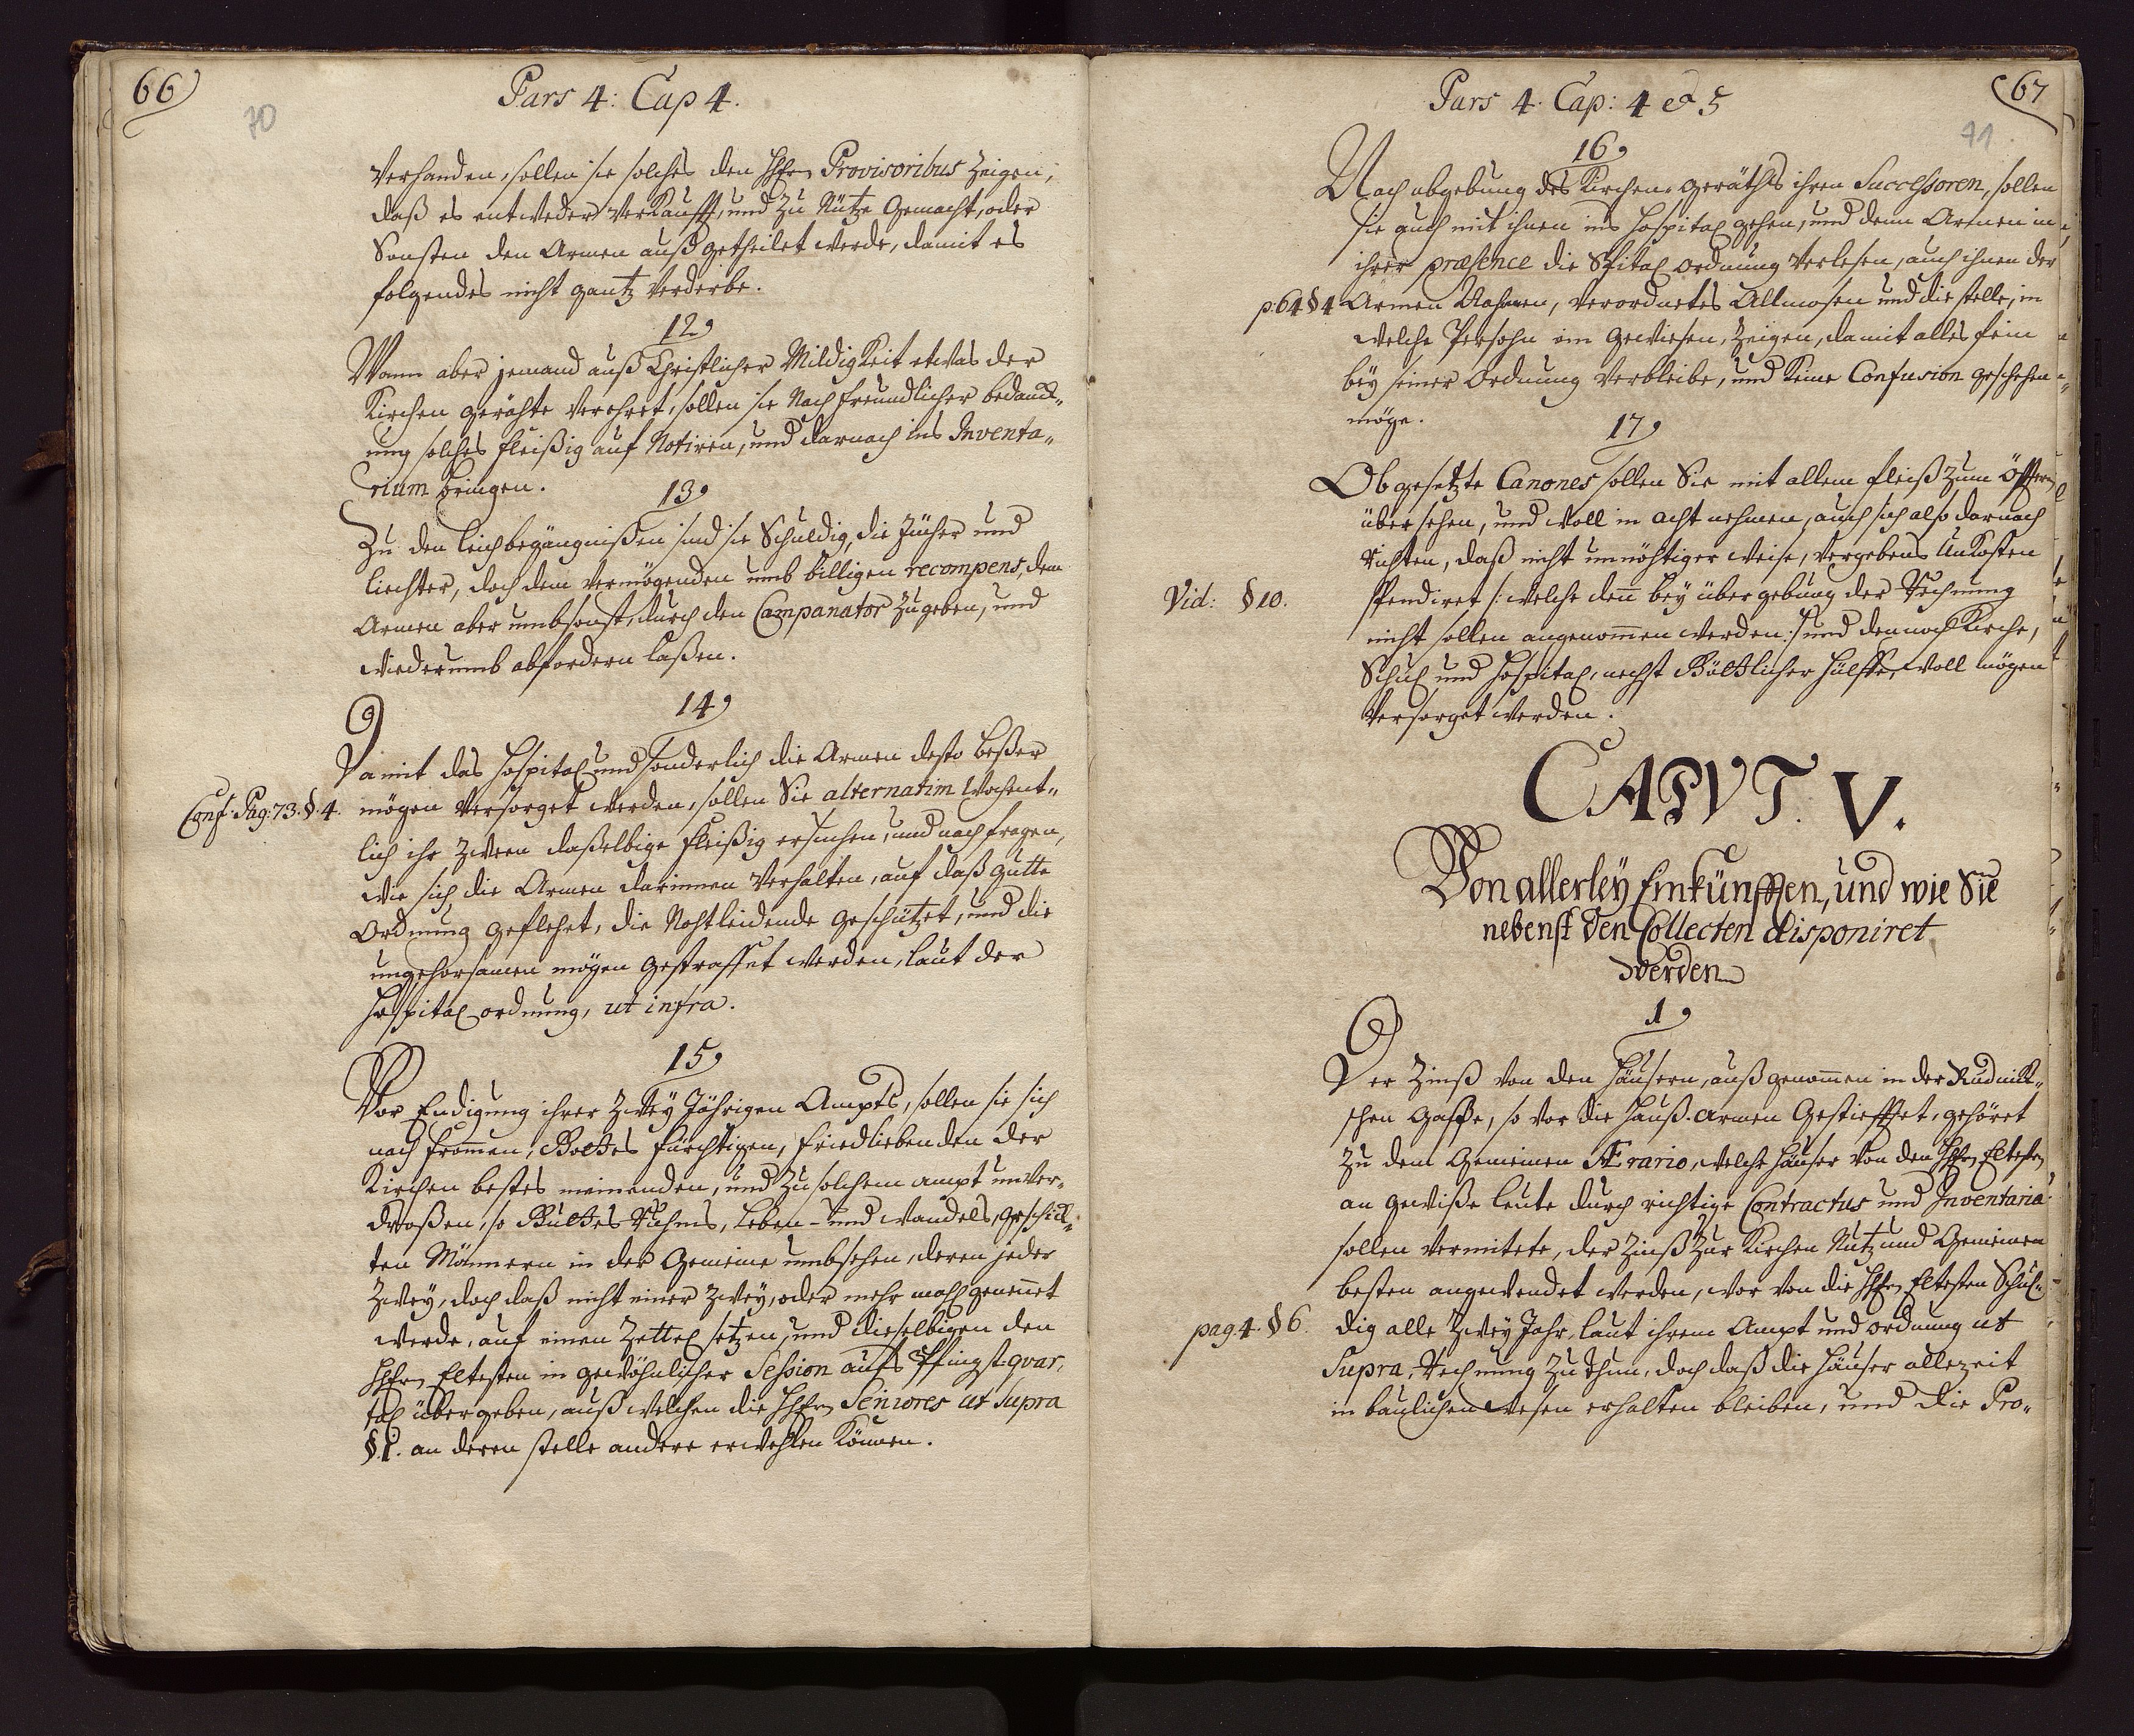 66
70
Pars 4: Cap 4.
Verhanden, sollen sie solches den Hhrn Provisoribus Zeigen,
daß es entweder Verkaufft, und zu Nütze Gemacht, oder
Sonsten den Armen auß getheilet werde, damit es
folgendes nicht gantz Verderbe.
12
Wann aber jemand auß Christlicher Mildigkeit etwas der
Kirchen gerähte Verehret, sollen sie Nach freundlicher bedanck„
ung solches fleißig auf Notiren, und darnach ins Inventa„
rium bringen.
13
Zu den leichbegängnißen sind sie Schuldig, die Tücher und
liechter, doch dem Vermögenden umb billigen recompens, dem
Armen aber umbsonst, durch den Campanator Zu geben, und
wiederumb abfordern laßen.
14
Damit das Hospital und sonderlich die Armen desto beßer
Conf: Pag: 73. §. 4.
mögen Versorget werden, sollen Sie alternatim Wochent„
lich ihr Zween daßelbige fleißig ersuchen, und nach fragen,
wie sich die Armen darinnen Verhalten, auf daß gutte
Ordnung geflehet, die Nohtleidende geschützet, und die
ungehorsamen mögen gestraffet werden, laut der
Hospital ordnung, ut infra.
15
Vor Endigung ihrer Zwey Jährigen Ampts, sollen sie sich
nach frommen, Gottes fürchtigen, friedliebenden der
Kirchen bestes meinenden, und Zu solchem ampt unver„
droßen, so Guttes Ruhms, Leben- und Wandels, geschick„
ten Männern in der Gemeine umbsehen, deren jeder
Zwey, doch daß nicht einer Zwey, oder mehr mahl genennet
werde, auf einen Zettel setzen, und dieselbigen den
Hhrn Eltesten in gewöhnlicher Session aufs Pfingst quar„
tal über geben, auß welchen die Hhrn Seniores ut supra
§. 1. an deren stelle andere erwehlen Können.
Pars 4. Cap: 4 et 5
67
71
16
Nach abgebung des Kirchen geräths ihren Successoren, sollen
sie auch mit ihnen ins Hospital gehen, und denn Armen in
ihrer præsence die Spital ordnung Verlesen, auch ihnen der
p. 64 § 4
Armen Nahmen, Verordnetes Allmosen und die stelle, in
welche Persohn ein gewiesen, Zeigen, damit alles fein
bey seiner Ordnung Verbleibe, und Keine Confusion geschehen
möge.
17
Obgesetzte Canones sollen Sie mit allem fleiß Zum öfftern
über sehen, und Woll in acht nehmen, auch sich also darnach
richten, daß nicht unnöhtiger weise, Vergebens Unkosten
Vid: § 10.
spendiret /: welche deñ bey über gebung der Rechnung
nicht sollen angenom̅en werden :/ und dennoch Kirche,
Schul und Hospital, nechst Göttlicher Hülffe, Woll mögen
Versorget werden.
CAPVT. V.
Von allerley Einkünfften, und wie Sie
nebenst den Collecten disponiret
werden
1
Der Zinß von den Häusern, auß genom̅en in der Rudnik„
schen Gasse, so vor die Hauß-Armen Gestiefftet, gehöret
Zu dem Gemeinen Ærario, welche Häuser von den Hhrn Eltesten
an gewiße leute durch richtige Contractus und Inventaria
sollen Vermitete, der Zinß Zur Kirchen Nutz und Gemeinen
besten angewendet werden, wor von die Hhrn Eltesten Schul„
pag. 4. § 6.
dig alle Zwey Jahr, laut ihrem Ampt und ordnung ut
Supra, Rechnung Zu thun, doch daß die Häuser allezeit
in baulichen Wesen erhalten bleiben, und die Pro„